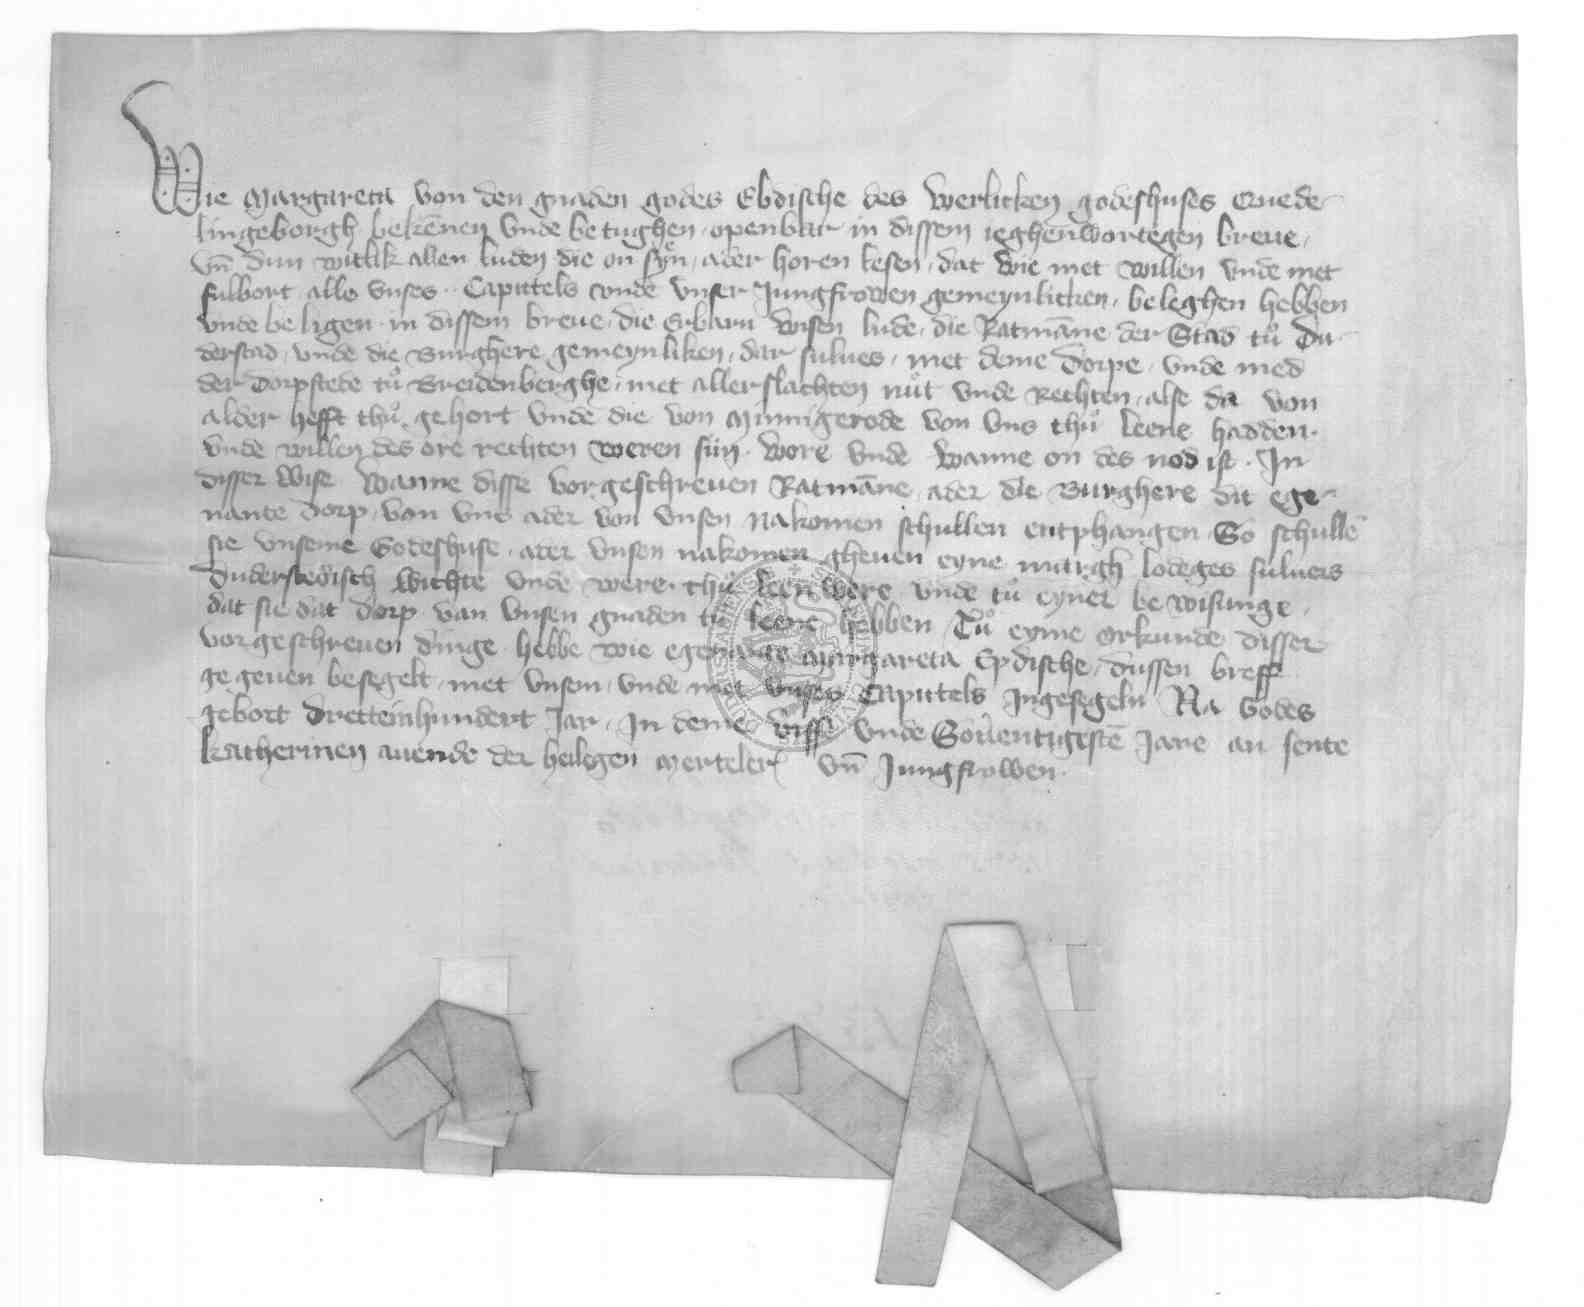 Wie Margareta von den gnaden godes Ebdische des werlicken godeshuses Quede-
lingeborgh bekēnen vnde betughen openbar in dissem ieghenwortegen breue,
vn̄ dun witlik allen luden die on syͤn, ader horen lesen, dat wie met willen vnde met
fulbort alle vnses Capittels vnde vnser Jungfrowen gemeynlicken, beleghen hebben
vnde beligen in dissem breue, die Erbarn wisen lude, die Ratmāne der Stad tuͦ Du-
derstad, vnde die Burghere gemeynliken, dar sulues, met deme dorpe, vnde med
der dorpstede tuͦ Breidenberghe, met allerslachten nuͦt vnde Rechten, alse da von
alder hefft thuͦ gehort vnde die von Minnigerode von vns thuͦ leene hadden.
vnde willen des ore rechten weren sijn. wore vnde wanne on des nod ist. In
disser wise wanne disse vorgeschreuen Ratmāne, ader die Burghere dit ege-
nante dorp, von vns ader von vnsen nakomen schullen entphangen, So schullē
sie vnseme Godeshuse, ader vnsen nakomen gheuen eyne margh lodeges suluers
Duderstedisch wichte vnde were. thuͦ leenwere, vnde tuͦ eyner bewisunge,
dat sie dat dorp van vnsen gnaden tuͦ leene hebben, Tuͦ eyme orkunde disser
vorgeschreuen dinge hebbe wie egenante Margareta Epdische, dussen breff
gegeuen besegelt, met vnsem, vnde met vnses Capittels Ingesegeln Na Godes
gebort dretteinhundert Jar, In deme viffe vnde Souentigistē Jare an sente
katherinen auende der heilegen merteler vn̄ Jungfrowen.